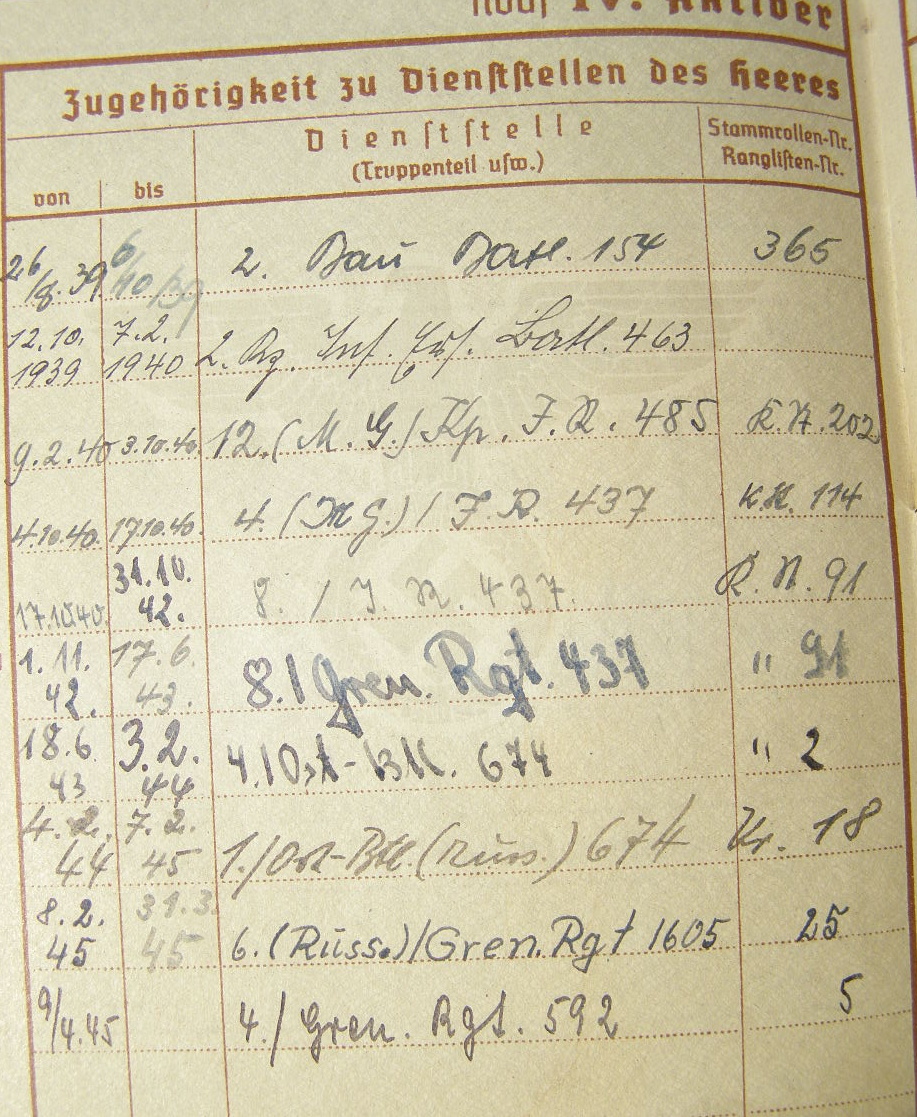 Noch IV. Aktiver
Zugehörigkeit zu Dienststellen des Heeres
von bis Dienststelle (Truppenteil usw.) Stammrollen-Nr. Ranglisten-Nr.
26/8.39 6/10/39 2. Bau Batl. 154 365
12.10. 1939 7.2. 1940 2. Inf. Ers. Batl. 463
9.2.40 3.10.40. 12.(M.G.) Kp. I.R. 485 K.N. 202
4.10.40. 17.10.40. 4. (MG.) / I.R. 437 K.N. 114
17.10.40. 31.10. 42. 8. / I.R. 437. K.N. 91
1.11. 42. 17.6. 43. 8./Gren. Rgt. 437 " 91
18.6 43 3.2. 44 4./Ost-Btl. 674 " 2
4.2. 44 7.2. 45 1./Ost-Btl. (russ.) 674 Nr. 18
8.2. 45 31.3. 45 6. (Russ.)/Gren. Rgt 1605 25
9/4.45 4./ Gren. Rgt. 592 5